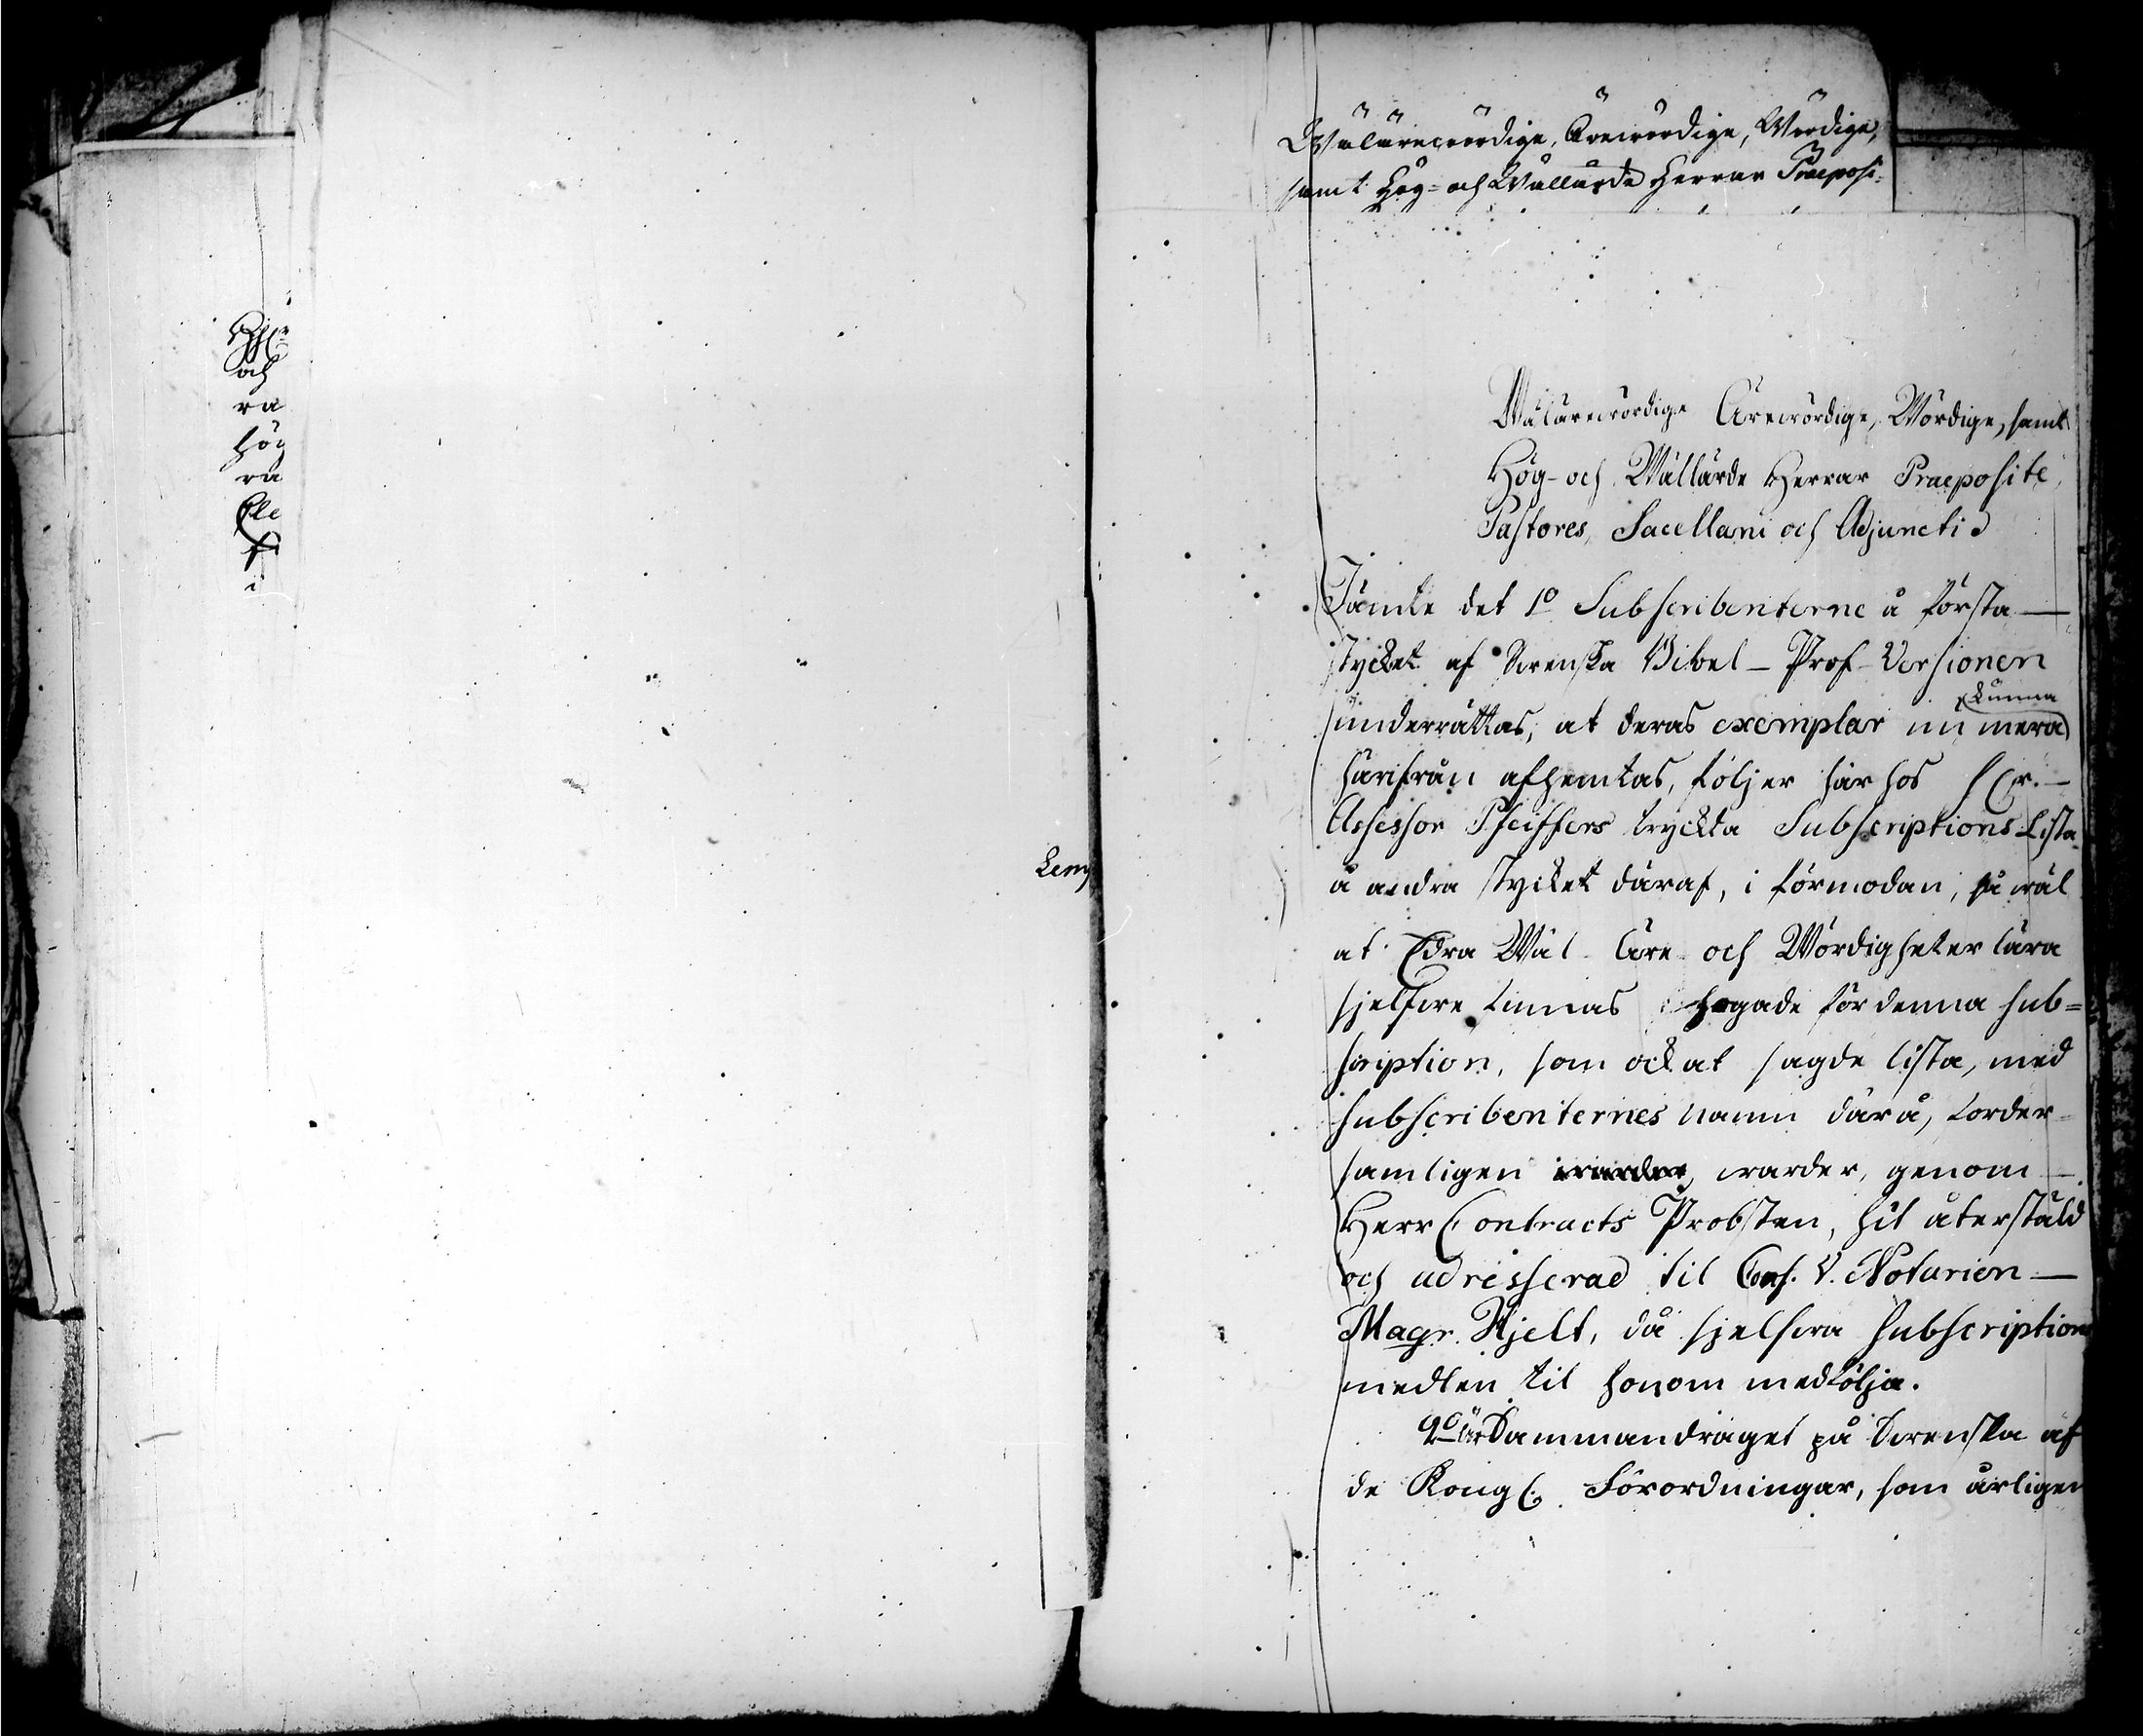 och
ra
hög
ra
Ele
f
i
Lem
Wälärewördige, Ärewördige, Wördige,
samt Hög- och Wällärde Herrar Praeposi-
Wälärewördige Ärewördige, Wördige, samt
Hög- och Wällärde Herrar Praepositi,
Pastores, Sacellani och Adjuncti
Jämte det 1o Subscribenterne å första
stycket af Swenska Bibel-Prof-Versionen
underrättas, at deras exemplar nu mera kunna
härifrån afhemtas, följer här hos Hr.
Assessor Pfeiffers tryckta Subscriptions Lista
å andra stycket däraf, i förmodan, så wäl
at Edra Wäl- Äre- och Wördigheter lära
sjelfwe finnas hogade för denna sub=
scription, som ock at sagde lista, med
subscribenternes namn därå, forder-
samligen warder, genom
Herr Contracts Probsten, hit återstäld
och adresserad til Cons. V. Notarien
Magr. Hjelt, då sjelfwa subscriptions
medlen til honom medfölja.
2o är Sammandraget på Swenska af
de Kongl. Förordningar, som årligen